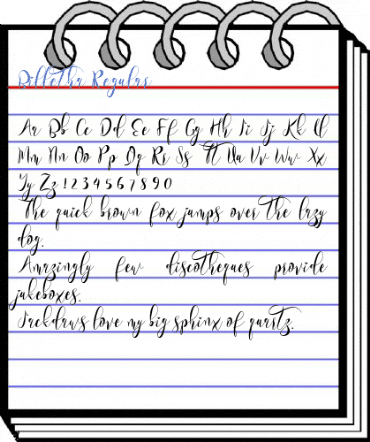 Dilletha Regular
Aa Bb Cc Dd Ee Ff Gg Hh Ii Jj Kk Ll
Mm Nn Oo Pp Qq Rr Ss Tt Uu Vv Ww Xx
Yy Zz 1 2 3 4 5 6 7 8 9 0
The quick brown fox jumps over the lazy
dog.
Amazingly few discotheques provide
jukeboxes.
Jackdaws love my big sphinx of quartz.